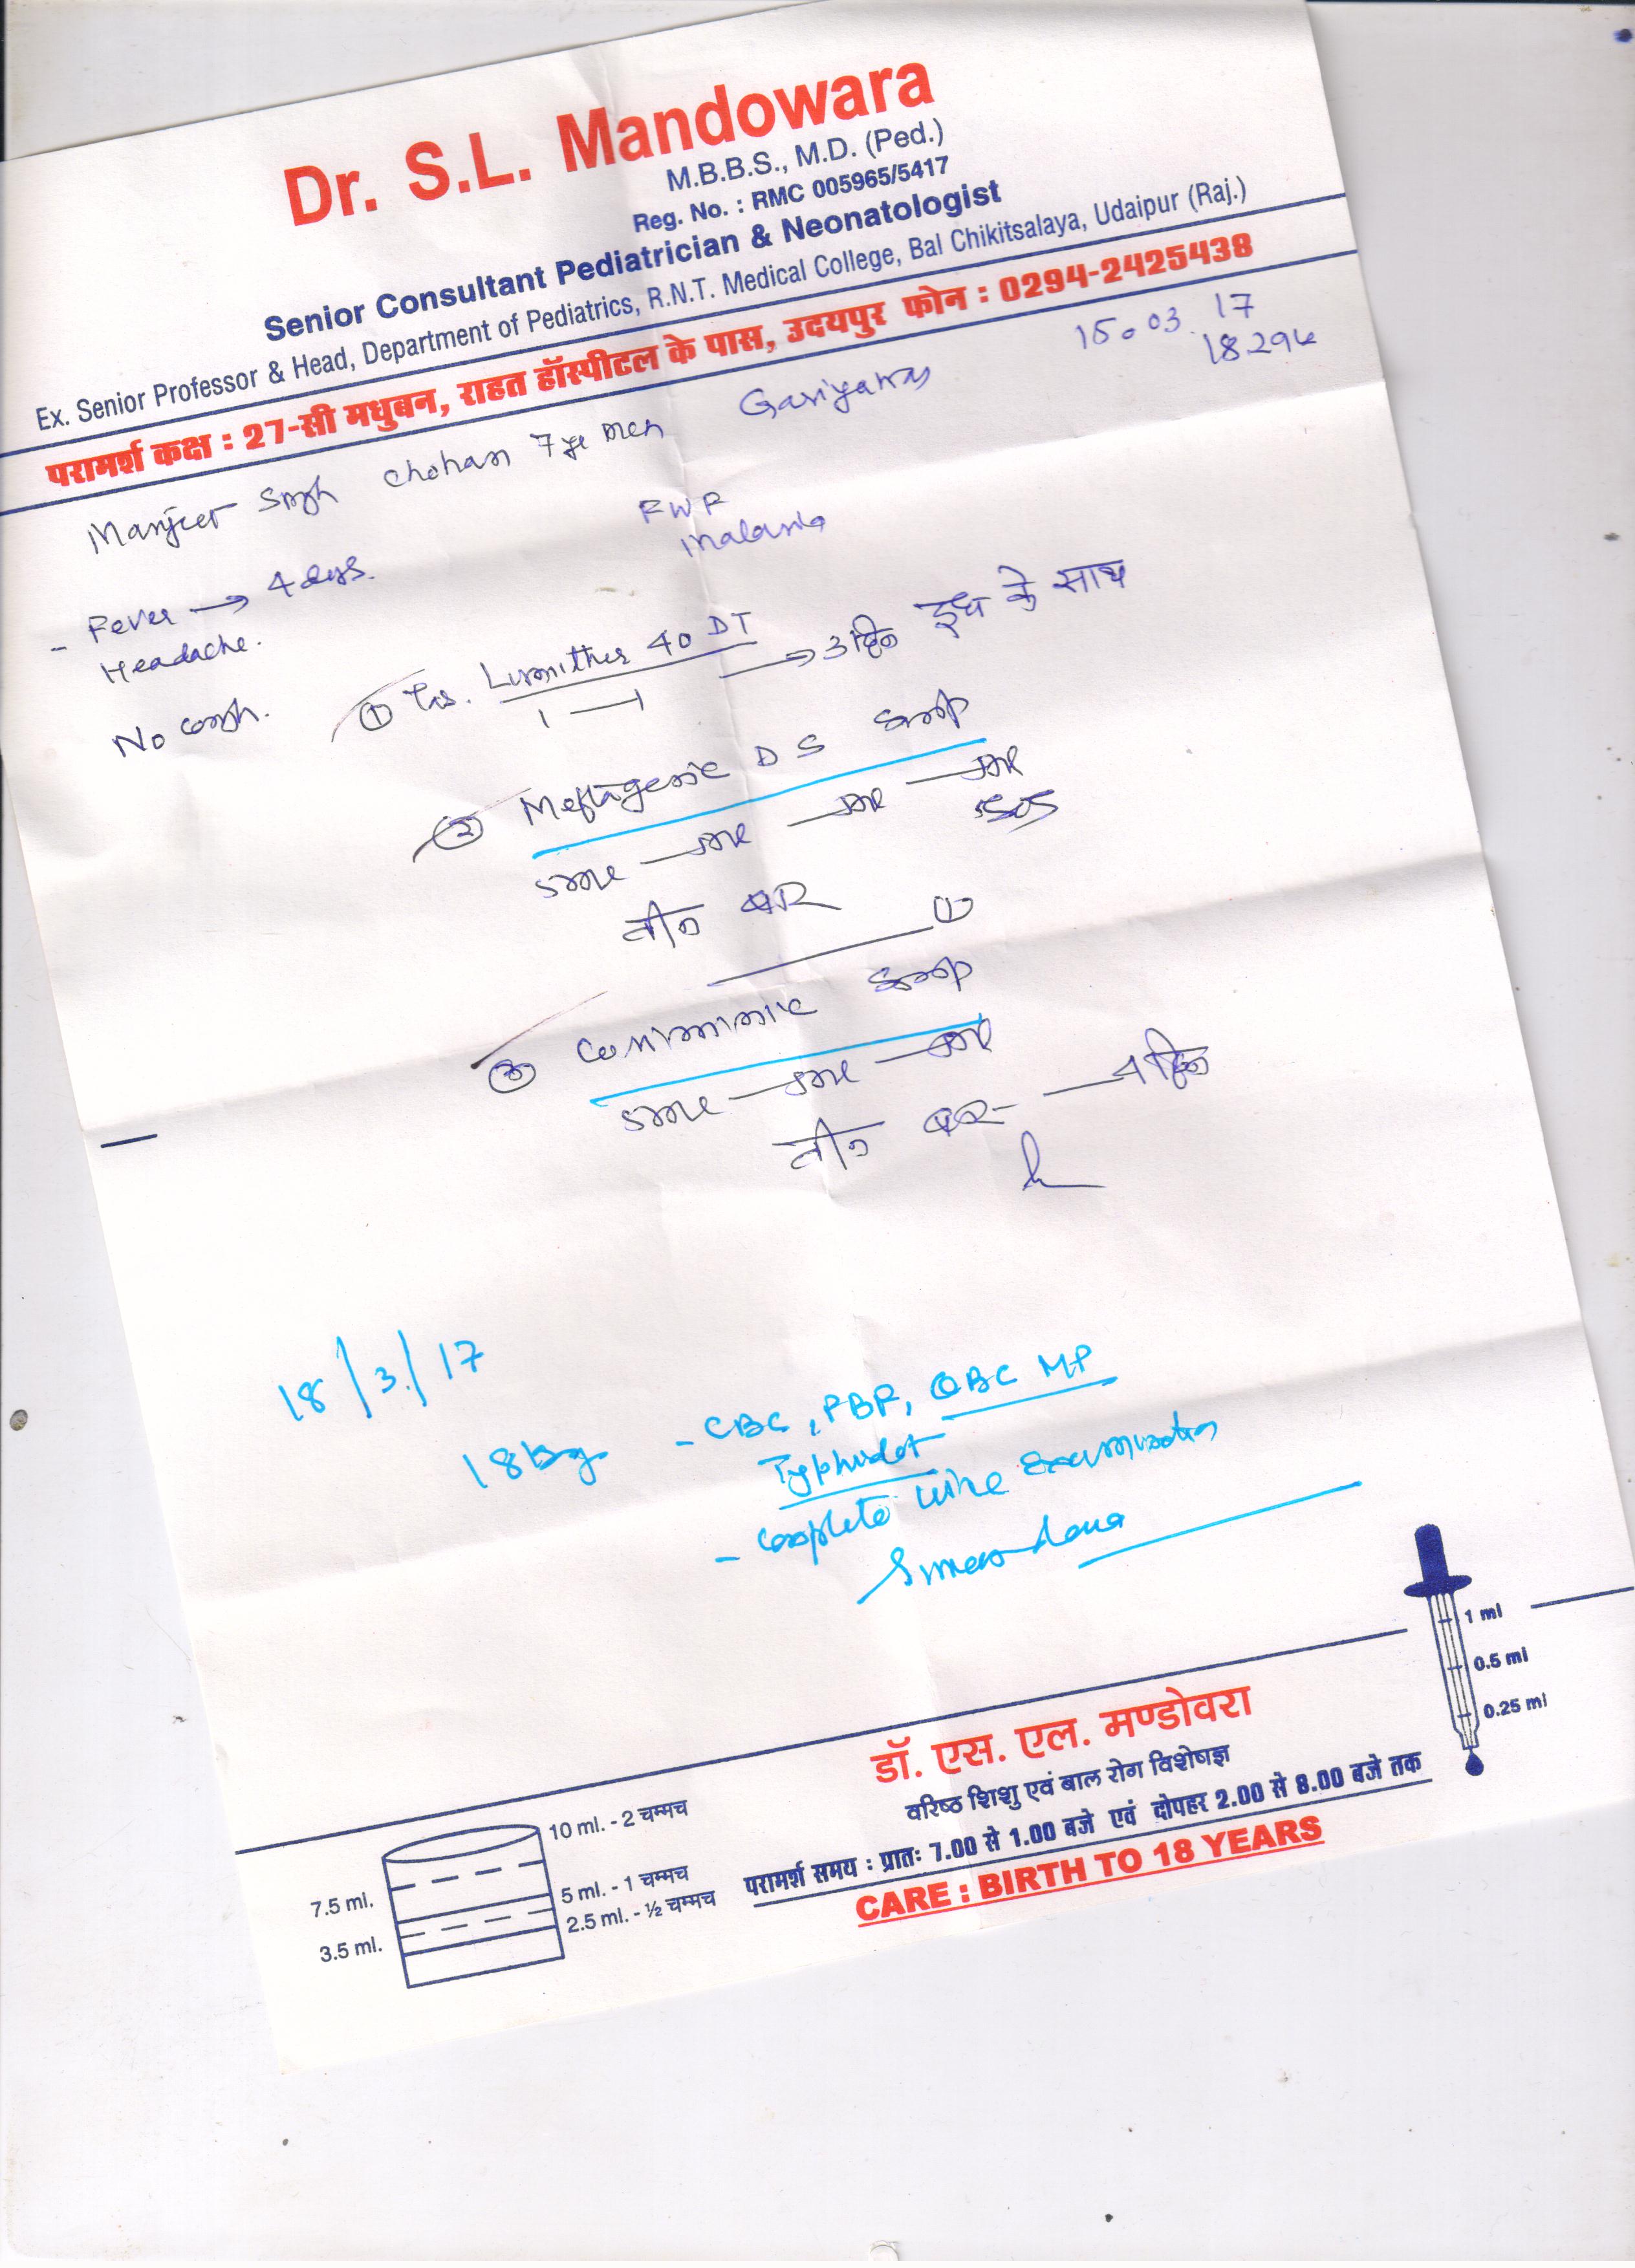 Dr. S.L. Mandowara
M.B.B.S., M.D. (Ped.)
Reg. No. : RMC 005965/5417
Senior Consultant Pediatrician & Neonatologist
Ex. Senior Professor & Head, Department of Pediatrics, R.N.T. Medical College, Bal Chikitsalaya, Udaipur (Raj.)
परामर्श कक्ष : 27-सी मधुबन, राहत हॉस्पीटल के पास, उदयपुर फोन : 0294-2425438
15.03.17
Manjeet Singh Chohan 7 ye
- Fever → 4 days.
Headache.
No cough.
Malaria
① Tab. Lumither 40 DT → 3 दिन दूध के साथ
1 — 1
② Meftagesic DS Syrup
5ml — 5ml — 5ml — 5ml
SOS
तीन बार
③ Syrup
5ml — 5ml — 5ml
तीन बार — 4 दिन
18/3/17
18 kg
- CBC, PBF, QBC MP
Typhidot
- Complete urine examination
डॉ. एस. एल. मण्डोवरा
वरिष्ठ शिशु एवं बाल रोग विशेषज्ञ
परामर्श समय : प्रातः 7.00 से 1.00 बजे एवं दोपहर 2.00 से 8.00 बजे तक
CARE : BIRTH TO 18 YEARS
10 ml. - 2 चम्मच
7.5 ml.
5 ml. - 1 चम्मच
2.5 ml. - ½ चम्मच
3.5 ml.
1 ml
0.5 ml
0.25 ml